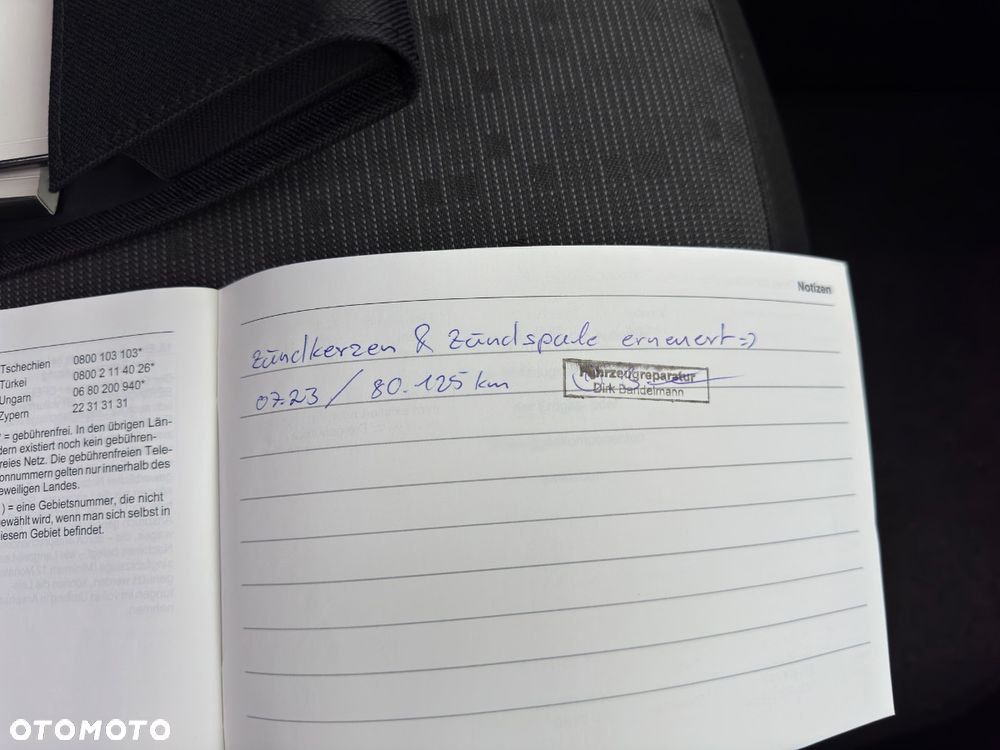 Tschechien 0800 103 103*
Türkei 0800 2 11 40 26*
Ungarn 06 80 200 940*
Zypern 22 31 31 31
* = gebührenfrei. In den übrigen Län-
dern existiert noch kein gebühren-
freies Netz. Die gebührenfreien Tele-
onnummern gelten nur innerhalb des
eweiligen Landes.
) = eine Gebietsnummer, die nicht
ewählt wird, wenn man sich selbst in
iesem Gebiet befindet.
Notizen
Zündkerzen & Zündspule erneuert =>
07.23 / 80.125 km
Fahrzeugreparatur
Dirk Bandelmann
OTOMOTO